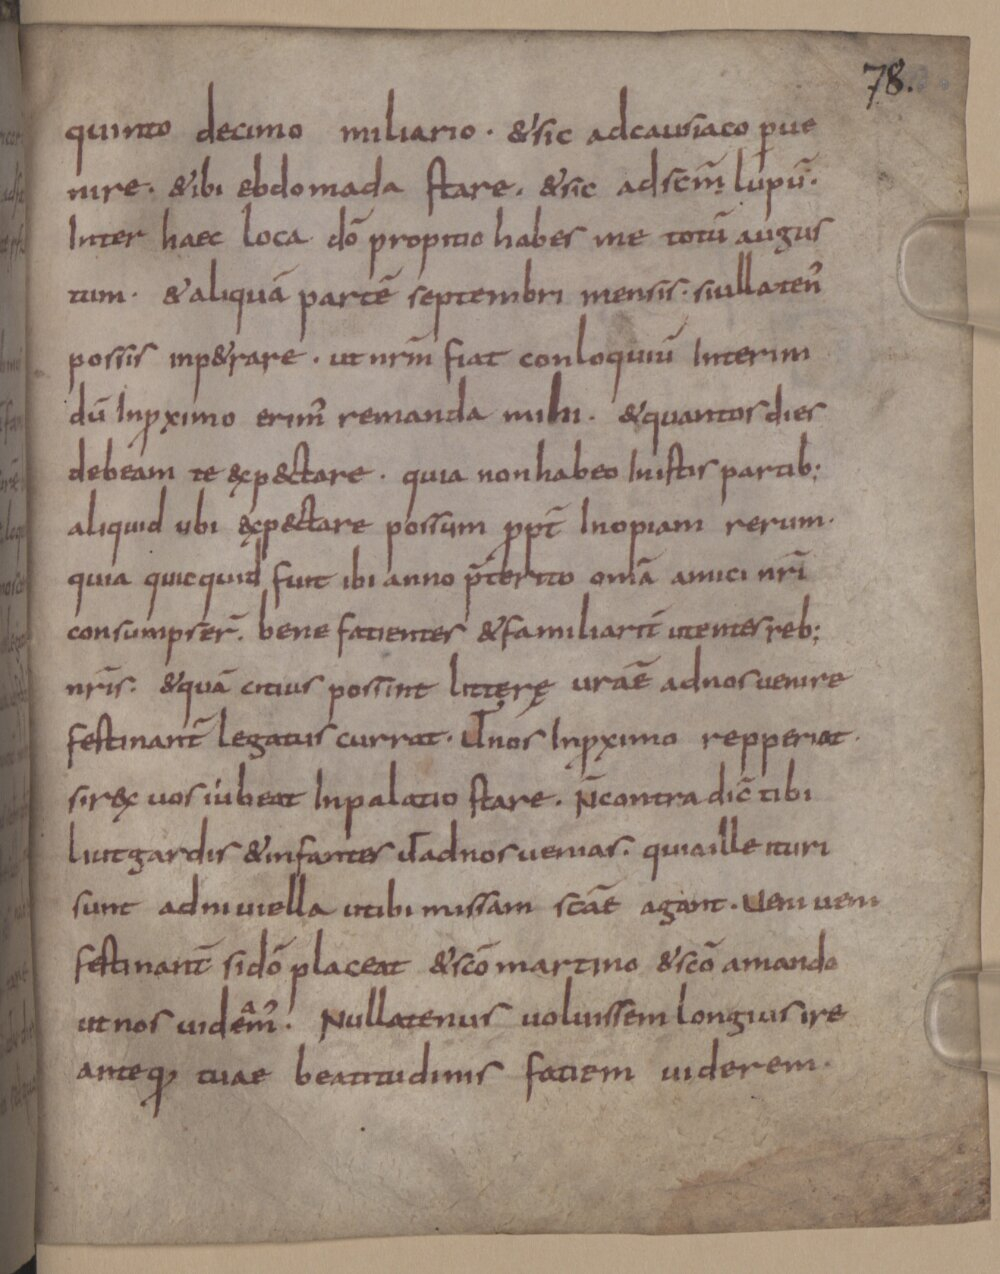 78.
quinto decimo miliario . & sic adcausiaco ꝑue
nire . & ibi ebdomada stare . & sic ad scm̄ lupū .
Inter haec loca dō propitio habes me totū augus
tum . & aliquā partē septembri mensis . si ullaten̄
possis inp&rare . ut nr̄m fiat conloquiū Interim
dū Inꝓximo erim̄ remanda mihi . & quantos dies
debeam te exp&ctare . quia non habeo Inistis partib;
aliquid ubi exp&ctare possum ꝓpt̄ Inopiam rerum .
quia quicquid fuit ibi anno p̄terito omā amici nr̄i
consumpser̄ . bene facientes & familiarit̄ utentes reb;
nr̄is . & quā citius possint litterę uraē ad nos uenire
festinant̄ legatus currat . ut̄ nos Inꝓximo repperiat .
si rex uos iubeat Inpalatio stare . N̄ contradic̄ tibi
liutgardis & infantes ut̄ ad nos uenias . quia ille ituri
sunt ad niuiella ut ibi missam scāe agant . Ueni ueni
festinant̄ si dō placeat & scō martino & scō amando
ut nos uideām̄ . Nullatenus uoluissem longius ire
anteꝙ tuae beatitudinis faciem uiderem .